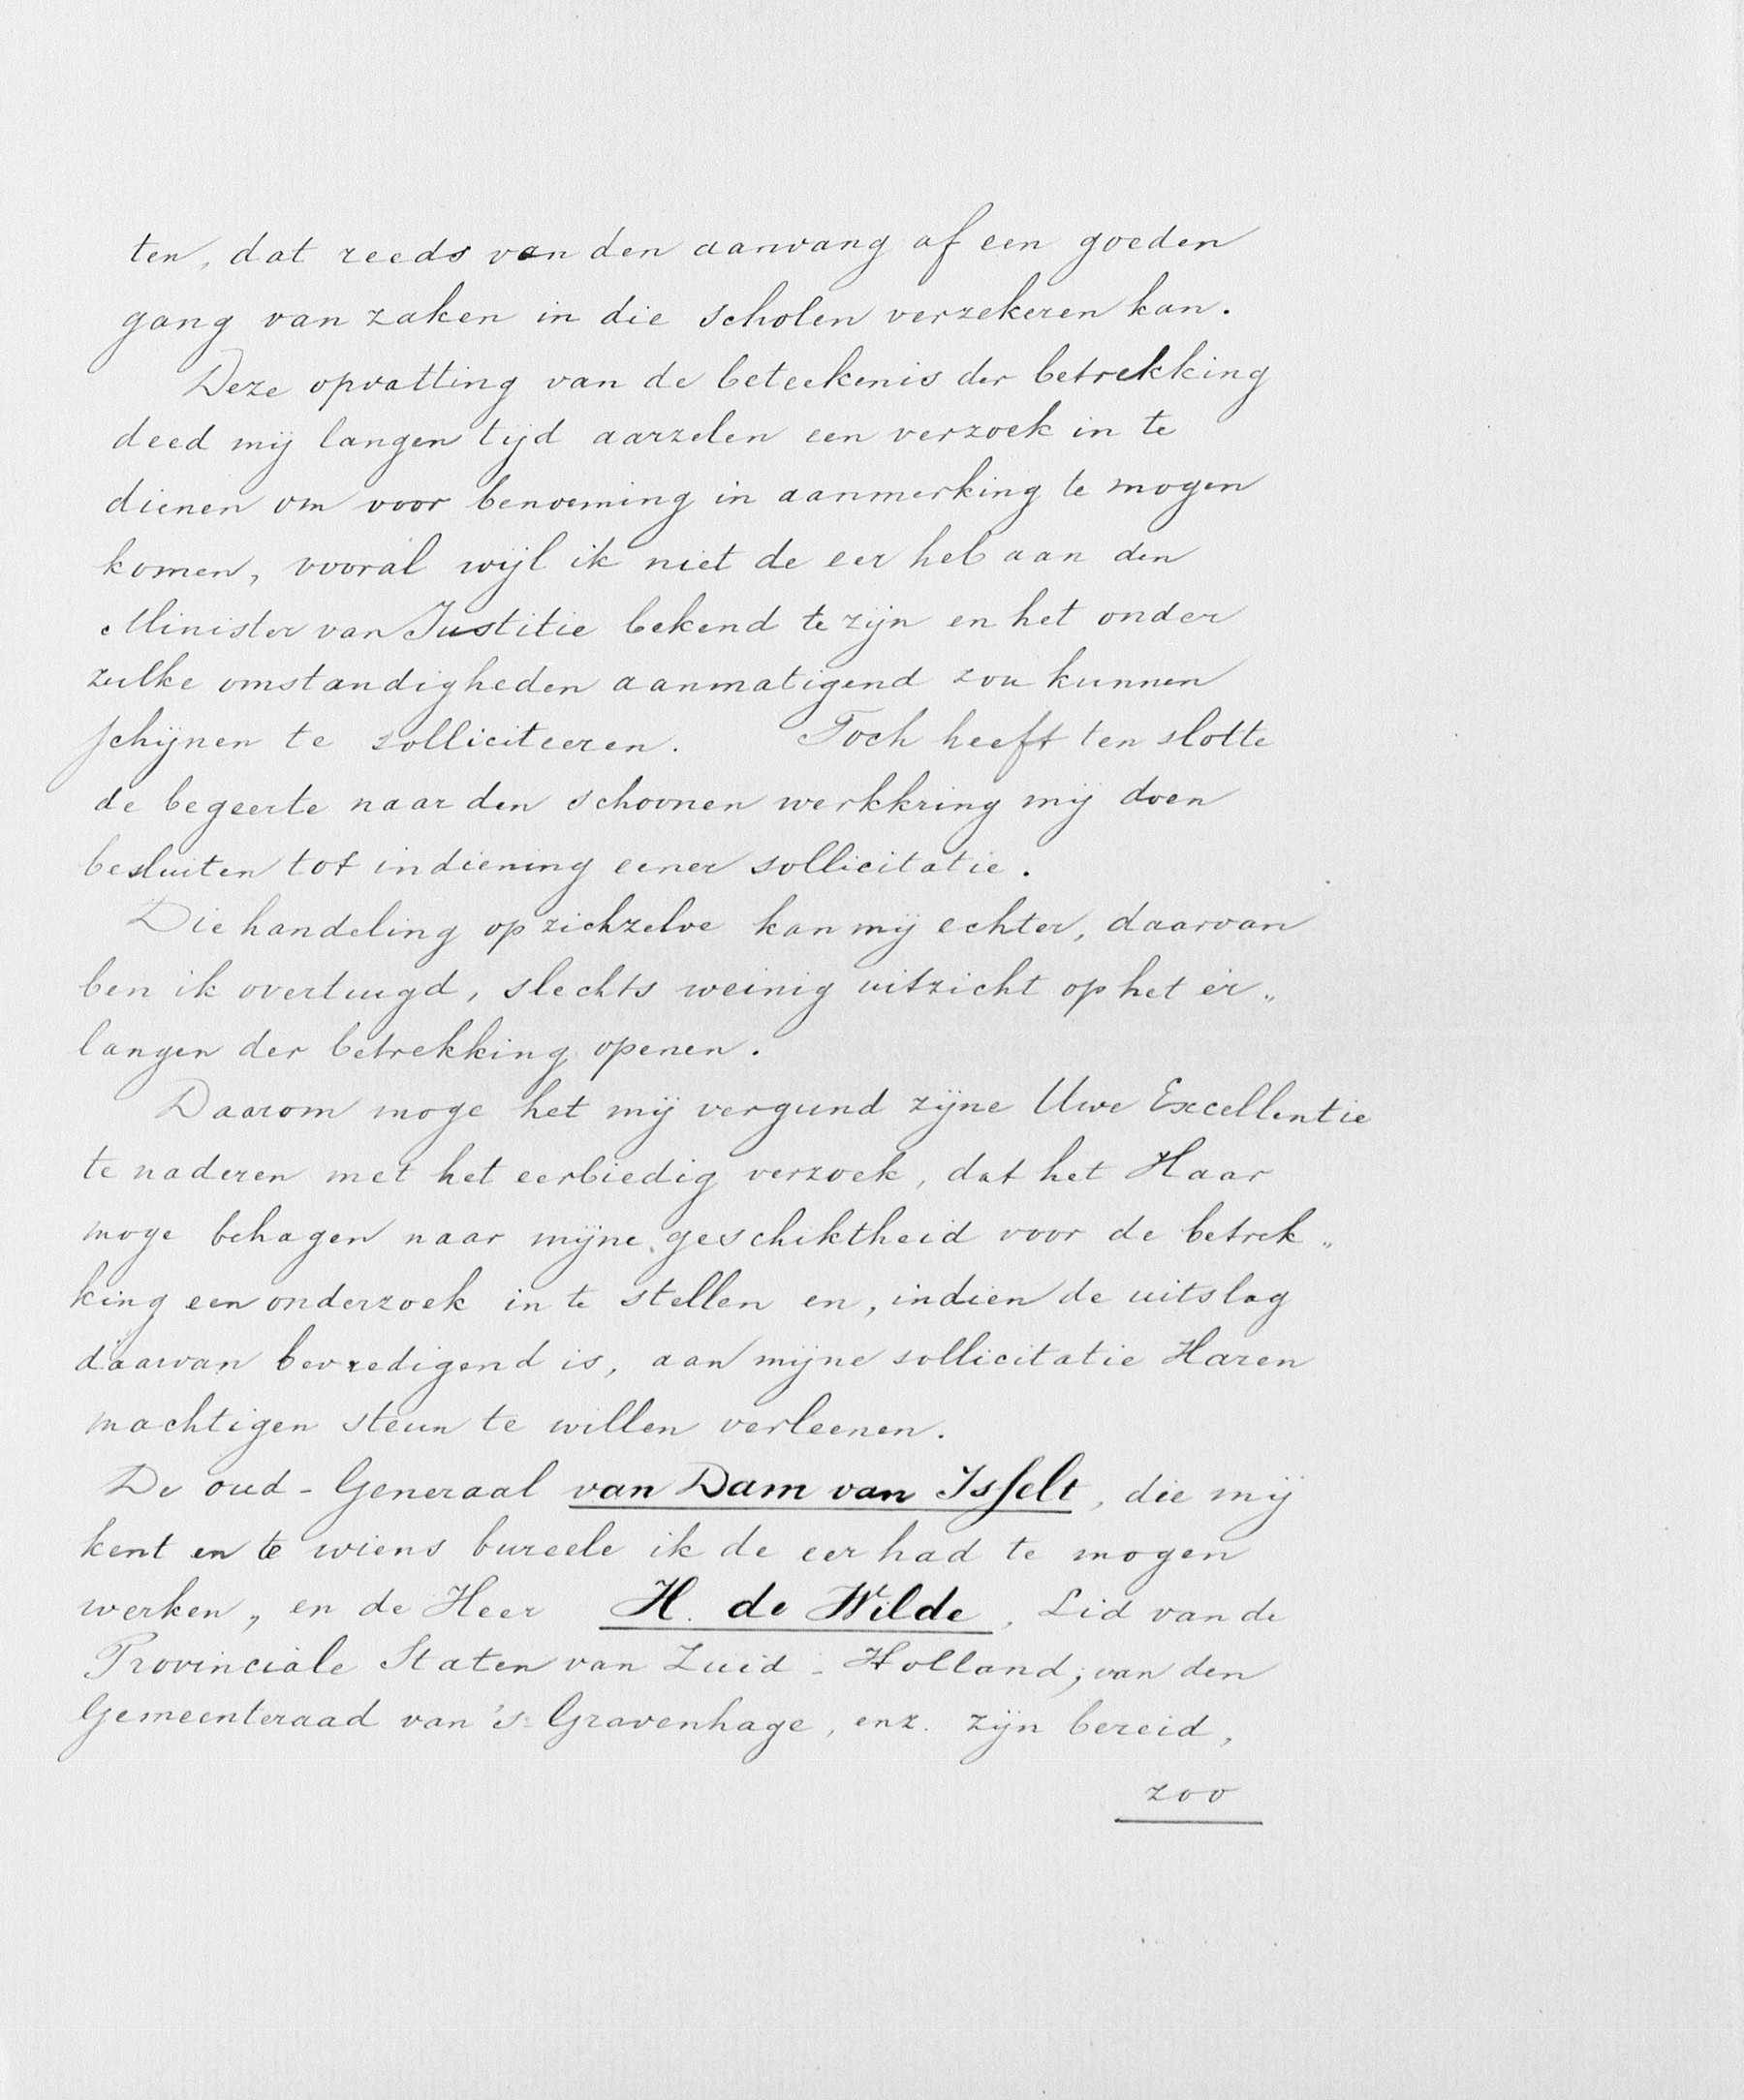 ten, dat reeds van den aanvang af een goeden
gang van zaken in die scholen verzekeren kan.
Deze opvatting van de beteekenis der betrekking
deed mij langen tijd aarzelen een verzoek in te
dienen om voor benoeming in aanmerking te mogen
komen, vooral wijl ik niet de eer heb aan den
Minister van Justitie bekend te zijn en het onder
zulke omstandigheden aanmatigend zou kunnen
schijnen te solliciteeren. Toch heeft ten slotte
de begeerte naar den schoonen werkkring mij doen
besluiten tot indiening eener sollicitatie.
Die handeling op zichzelve kan mij echter, daarvan
ben ik overtuigd, slechts weinig uitzicht op het er„
langen der betrekking openen.
Daarom moge het mij vergund zijne Uwe Excellentie
te naderen met het eerbiedig verzoek, dat het Haar
moge behagen naar mijne geschiktheid voor de betrek„
king een onderzoek in te stellen en, indien de uitslag
daarvan bevredigend is, aan mijne sollicitatie Haren
machtigen steun te willen verleenen.
De oud-Generaal van Dam van Isselt, die mij
kent en te wiens bureele ik de eer had te mogen
werken, en de Heer H. de Wilde, Lid van de
Provinciale Staten van Zuid-Holland, van den
Gemeenteraad van 's-Gravenhage, enz. zijn bereid,
zoo